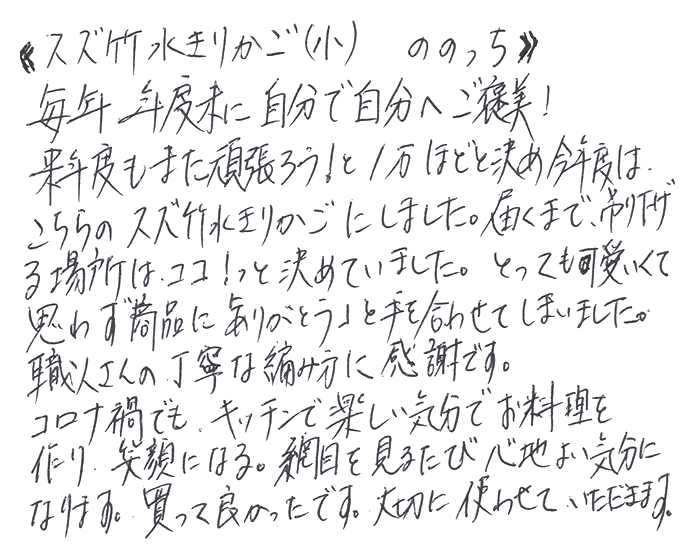 《スズ竹水きりかご(小)　ののっち》
毎年 年度末に自分で自分へご褒美!
来年度もまた頑張ろう!と1万ほどと決め今年度は、
こちらのスズ竹水きりかごにしました。届くまで、吊り下げ
る場所は、ココ!っと決めていました。とっても可愛いくて
思わず商品にありがとう」と手を合わせてしまいました。
職人さんの丁寧な編み方に感謝です。
コロナ禍でも、キッチンで楽しい気分でお料理を
作り、笑顔になる。網目を見るたび心地よい気分に
なります。買って良かったです。大切に使わせていただきます。